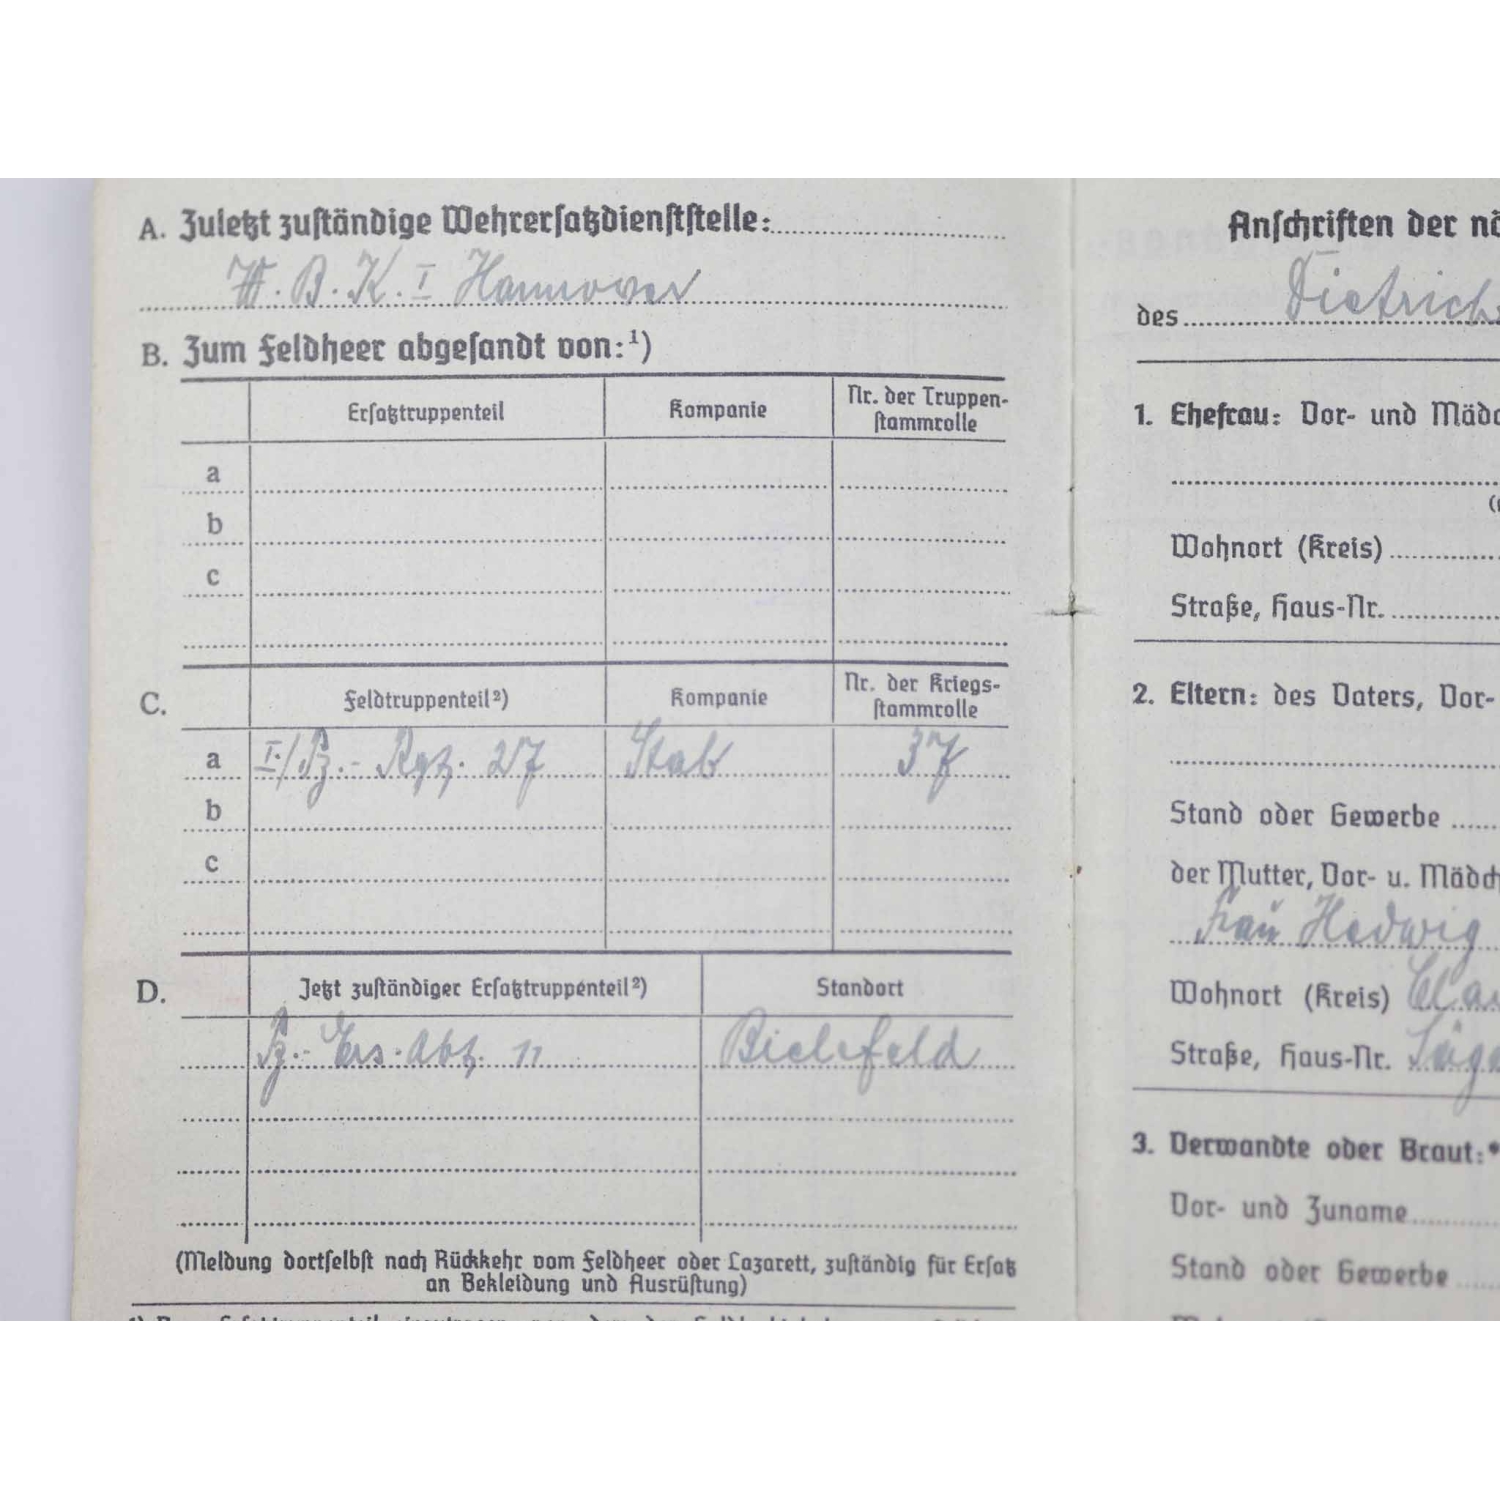 A. Zuletzt zuständige Wehrersatzdienststelle:
W. B. K. I Hannover
B. Zum Feldheer abgesandt von:¹)
Ersatztruppenteil Kompanie Nr. der Truppen-
stammrolle
a
b
c
C. Feldtruppenteil²) Kompanie Nr. der Kriegs-
stammrolle
a I./Pz.- Rgt. 27 Stab 37
b
c
D. Jetzt zuständiger Ersatztruppenteil²) Standort
Pz.- Ers. Abt. 11 Bielefeld
(Meldung dortselbst nach Rückkehr vom Feldheer oder Lazarett, zuständig für Ersatz
an Bekleidung und Ausrüstung)
Anschriften der
des Dietrich
1. Ehefrau: Vor- und
Wohnort (Kreis)
Straße, Haus-Nr.
2. Eltern: des Vaters, Vor-
Stand oder Gewerbe
der Mutter, Vor- u.
Frau Hedwig
Wohnort (Kreis)
Straße, Haus-Nr.
3. Verwandte oder Braut:*
Vor- und Zuname
Stand oder Gewerbe